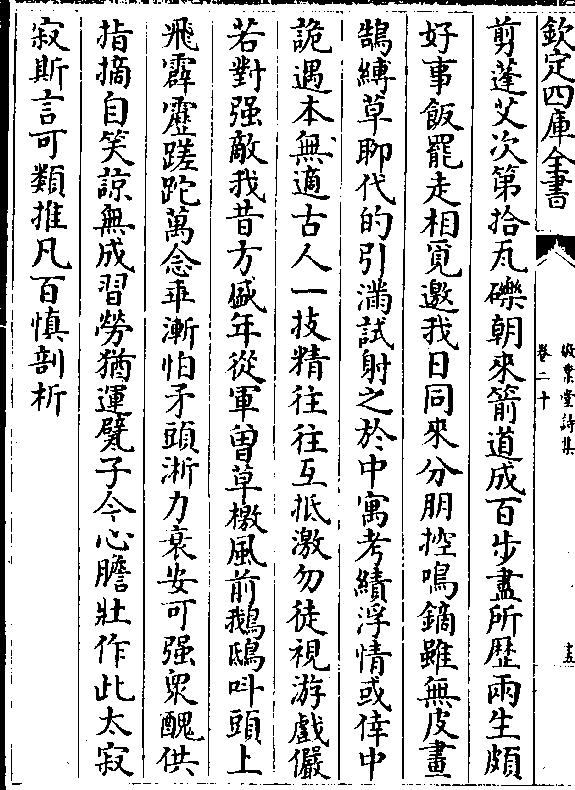 欽定四庫全書
敬業堂詩集
卷二十
剪蓬艾次第拾瓦礫朝來箭道成百步盡所歴兩生頗
好事飯罷走相覓邀我日同來分朋控鳴鏑雖無皮畫
鵠縛草聊代的引滿試射之於中寓考績浮情或倖中
詭遇本無適古人一技精往往互抵激勿徒視游戲儼
若對强敵我昔方盛年從軍曽草檄風前鵝鴟呌頭上
飛霹靂蹉跎萬念乖漸怕矛頭淅力衰安可强衆醜供
指摘自笑諒無成習勞猶運甓子今心膽壯作此太寂
寂斯言可類推凡百慎剖析